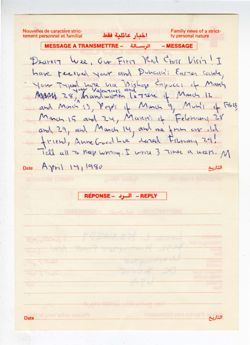 Nouvelles de caractère strictement personnel et familial
اخبار عائلية فقط
Family news of a strictly personal nature
MESSAGE A TRANSMETTRE – الرسالة – MESSAGE
Dearest Wee, Our First Red Cross Visit! I
have received your and Duncan's Easter cards,
your typed note via Bishop of March
March 28, handwritten letters of March 12
and March 13, Pop's of March 9, Mutti's of
March 18 and 24, Mutti's of February 28
and 29, and March 14, and one from our old
friend, dated February 29!
Tell all to keep writing. I wrote 3 times a week. M
April 14, 1980
Date
التاريخ
RÉPONSE – الرد – REPLY
Date
التاريخ